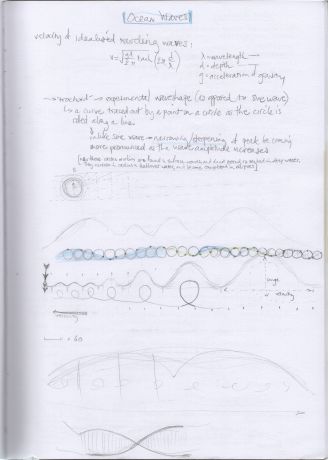 Ocean Waves
velocity of idealized traveling waves:
v = √(gλ/2π tanh (2π d/λ))
λ = wavelength
d = depth
g = acceleration of gravity
→ "trochoid" → experimental waveshape (as opposed to sine wave)
↳ a curve traced out by a point on a circle as the circle is
rolled along a line.
unlike sine wave → narrowing/steepening of peak becoming
more pronounced as the wave amplitude increases
velocity
velocity
= 60